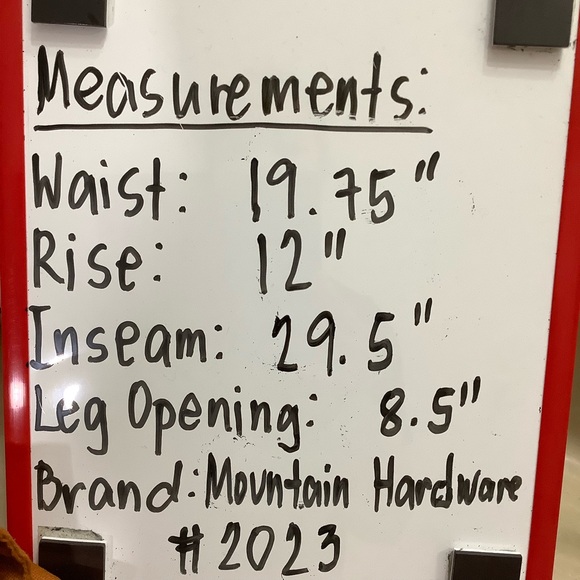 Measurements:
Waist: 19.75"
Rise: 12"
Inseam: 29.5"
Leg Opening: 8.5"
Brand: Mountain Hardware
#2023